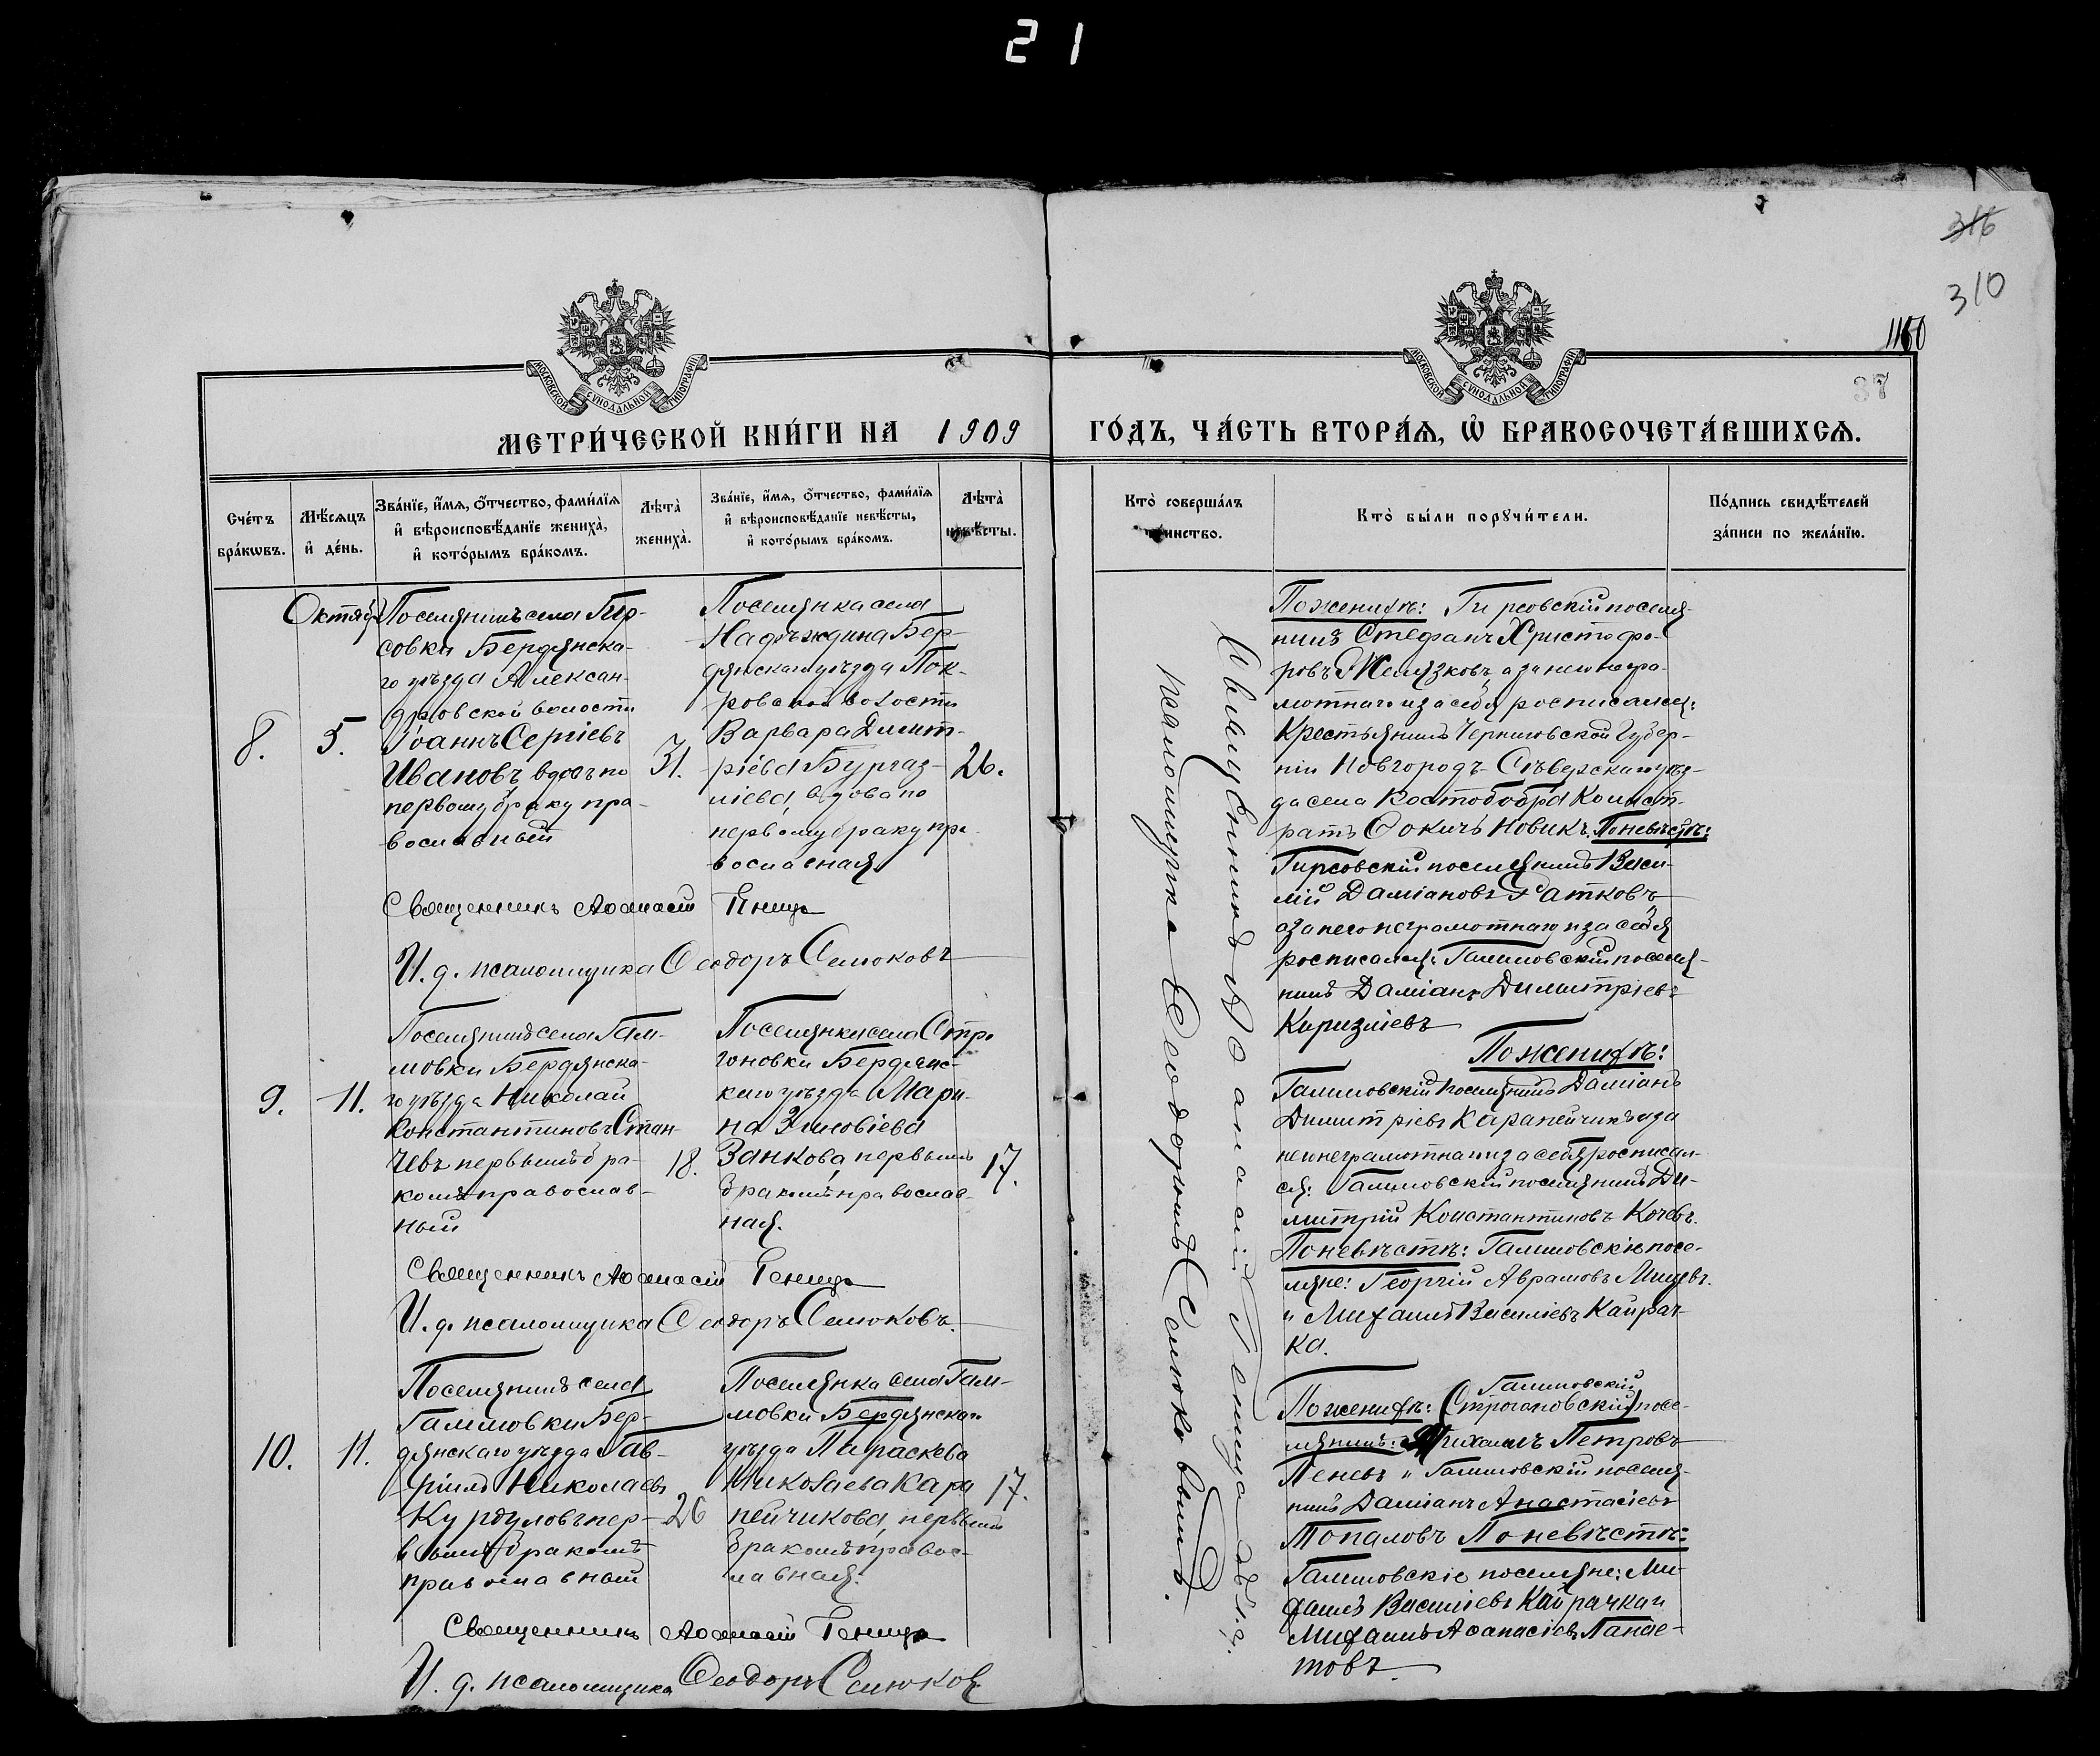 21
316
310
1160
37
МОСКОВСКОЙ СѴНОДАЛЬНОЙ ТИПОГРАФІИ
МОСКОВСКОЙ СѴНОДАЛЬНОЙ ТИПОГРАФІИ
МЕТРИ́ЧЕСКОЙ КНИ́ГИ НА 1909 ГО́ДЪ, ЧА́СТЬ ВТОРА́Ѧ, Ѡ҆ БРАКОСОЧЕТА́ВШИХСѦ.
Сче́тъ
бра́кѡвъ.
Мѣ́сѧцъ
и҆ де́нь.
Зва́нїе, и҆́мѧ, ѻ҆́тчество, фами́лїѧ
и҆ вѣроисповѣ́данїе жениха̀,
и҆ кото́рымъ бра́комъ.
Лѣ́та̀
жениха̀.
Зва́нїе, и҆́мѧ, ѻ҆́тчество, фами́лїѧ
и҆ вѣроисповѣ́данїе невѣ́сты,
и҆ кото́рымъ бра́комъ.
Лѣ́та̀
невѣ́сты.
Кто̀ соверша́лъ
таинство.
Кто̀ бы́ли порꙋчи́тели.
По́дпись свидѣ́телей
за́писи по жела́нїю.
Октябр
8.
5.
Поселянинъ села Гир-
совки Бердянска-
го уѣзда Алексан-
дровской волости
Іоаннъ Сергіевъ
Ивановъ вдовъ по
первому браку пра-
вославный
31.
Поселянка села
Надеждина Бер-
дянскаго уѣзда Пок-
ровской волости
Варвара Димит-
ріева Бургаз-
ліева, вдова по
первому браку пра
вославная
26.
Священникъ Аѳанасій Геница
И. д. псаломщика Ѳеодоръ Семоковъ
9.
11.
Поселянинъ села Гам-
мовки Бердянска-
го уѣзда Николай
Константиновъ Стан-
чевъ первымъ бра-
комъ православ-
ный
18.
Поселянка села Стро
гоновки Бердянс-
каго уѣзда Мари-
на Зиновіева
Занкова, первымъ
бракомъ православ-
ная.
17.
Священникъ Аѳанасій Геница
И. д. псаломщика Ѳеодоръ Семоковъ.
10.
11.
Поселянинъ села
Гаммовки Бер-
дянскаго уѣзда Гав-
ріилъ Николаевъ
Курдуловъ пер-
вымъ бракомъ
православный
26
Поселянка села Гам-
мовки Бердянскаго
уѣзда Параскева
Николаева Кара
пейчикова, первымъ
бракомъ правос-
лавная.
17.
Священникъ Аѳанасій Геница
И. д. псаломщика Ѳеодоръ Семоковъ
Священникъ Аѳанасій Геница съ и. д.
псаломщика Ѳеодоромъ Семоковымъ.
По женихѣ: Гирсовскій поселя-
нинъ Стефанъ Христофо-
ровъ Желязковъ, а за него негра-
мотнаго и за себя росписался:
Крестьянинъ Черниговской Губер-
ніи Новгородъ-Сѣверскаго уѣз-
да села Костобобра Каллист-
ратъ Новикъ. По невѣстѣ:
Гирсовскій поселянинъ Васи-
лій Даміановъ Ратковъ
а за него неграмотнаго и за себя
росписался: Гаммовскій поселя-
нинъ Даміанъ Димитріевъ
Киризліевъ
По женихѣ:
Гаммовскій поселянинъ Даміанъ
Димитріевъ Карапейчикъ а за
него неграмотнаго и за себя росписал-
ся: Гаммовскій поселянинъ Ди-
митрій Константиновъ Кочевъ.
По невѣстѣ: Гаммовскіе посе-
ляне: Георгій Аврамовъ Мицевъ.
и Михаилъ Василіевъ Кайрач-
ка.
Гаммовскій
По женихѣ: (Строгоновскій) посе-
лянинъ: Михаилъ Петровъ
Пеневъ и Гаммовскій поселя-
нинъ Даміанъ Анастасіевъ
Топаловъ По невѣстѣ:
Гаммовскіе поселяне: Ми-
хаилъ Василіевъ Кайрачка и
Михаилъ Аѳанасіевъ Панае-
товъ